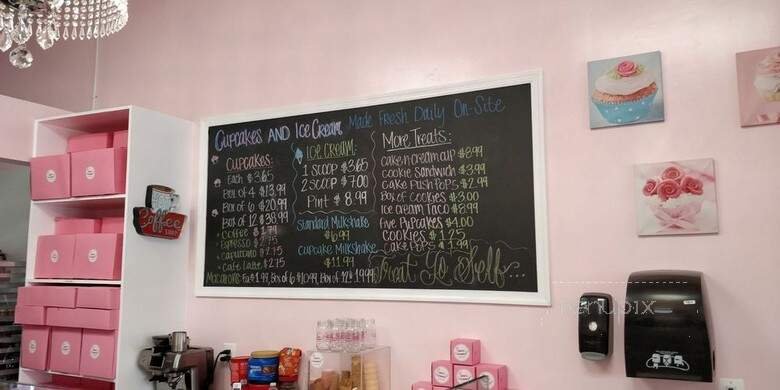 Cupcakes AND Ice Cream Made Fresh Daily On-Site
Cupcakes:
Each $3.65
Box of 4 $13.99
Box of 6 $20.99
Box of 12 $38.99
Coffee $1.79
Espresso $2.75
Capuccino $2.75
Cafe Latte $2.75
Ice Cream:
1 Scoop $3.65
2 Scoop $7.00
Pint $8.99
Standard Milkshake
$6.99
Cupcake Milkshake
$11.99
More Treats:
Cake n Cream Cup $8.99
Cookie Sandwich $3.99
Cake Push Pops $2.99
Box of Cookies $3.00
Ice Cream Taco $8.99
Five Pupcakes $1.00
Cookies $1.25
Cake Pops $1.99
Macarons: Ea $1.99, Box of 6 $10.99, Box of 12 $19.99
Treat Yo Self...
Coffee
menupix